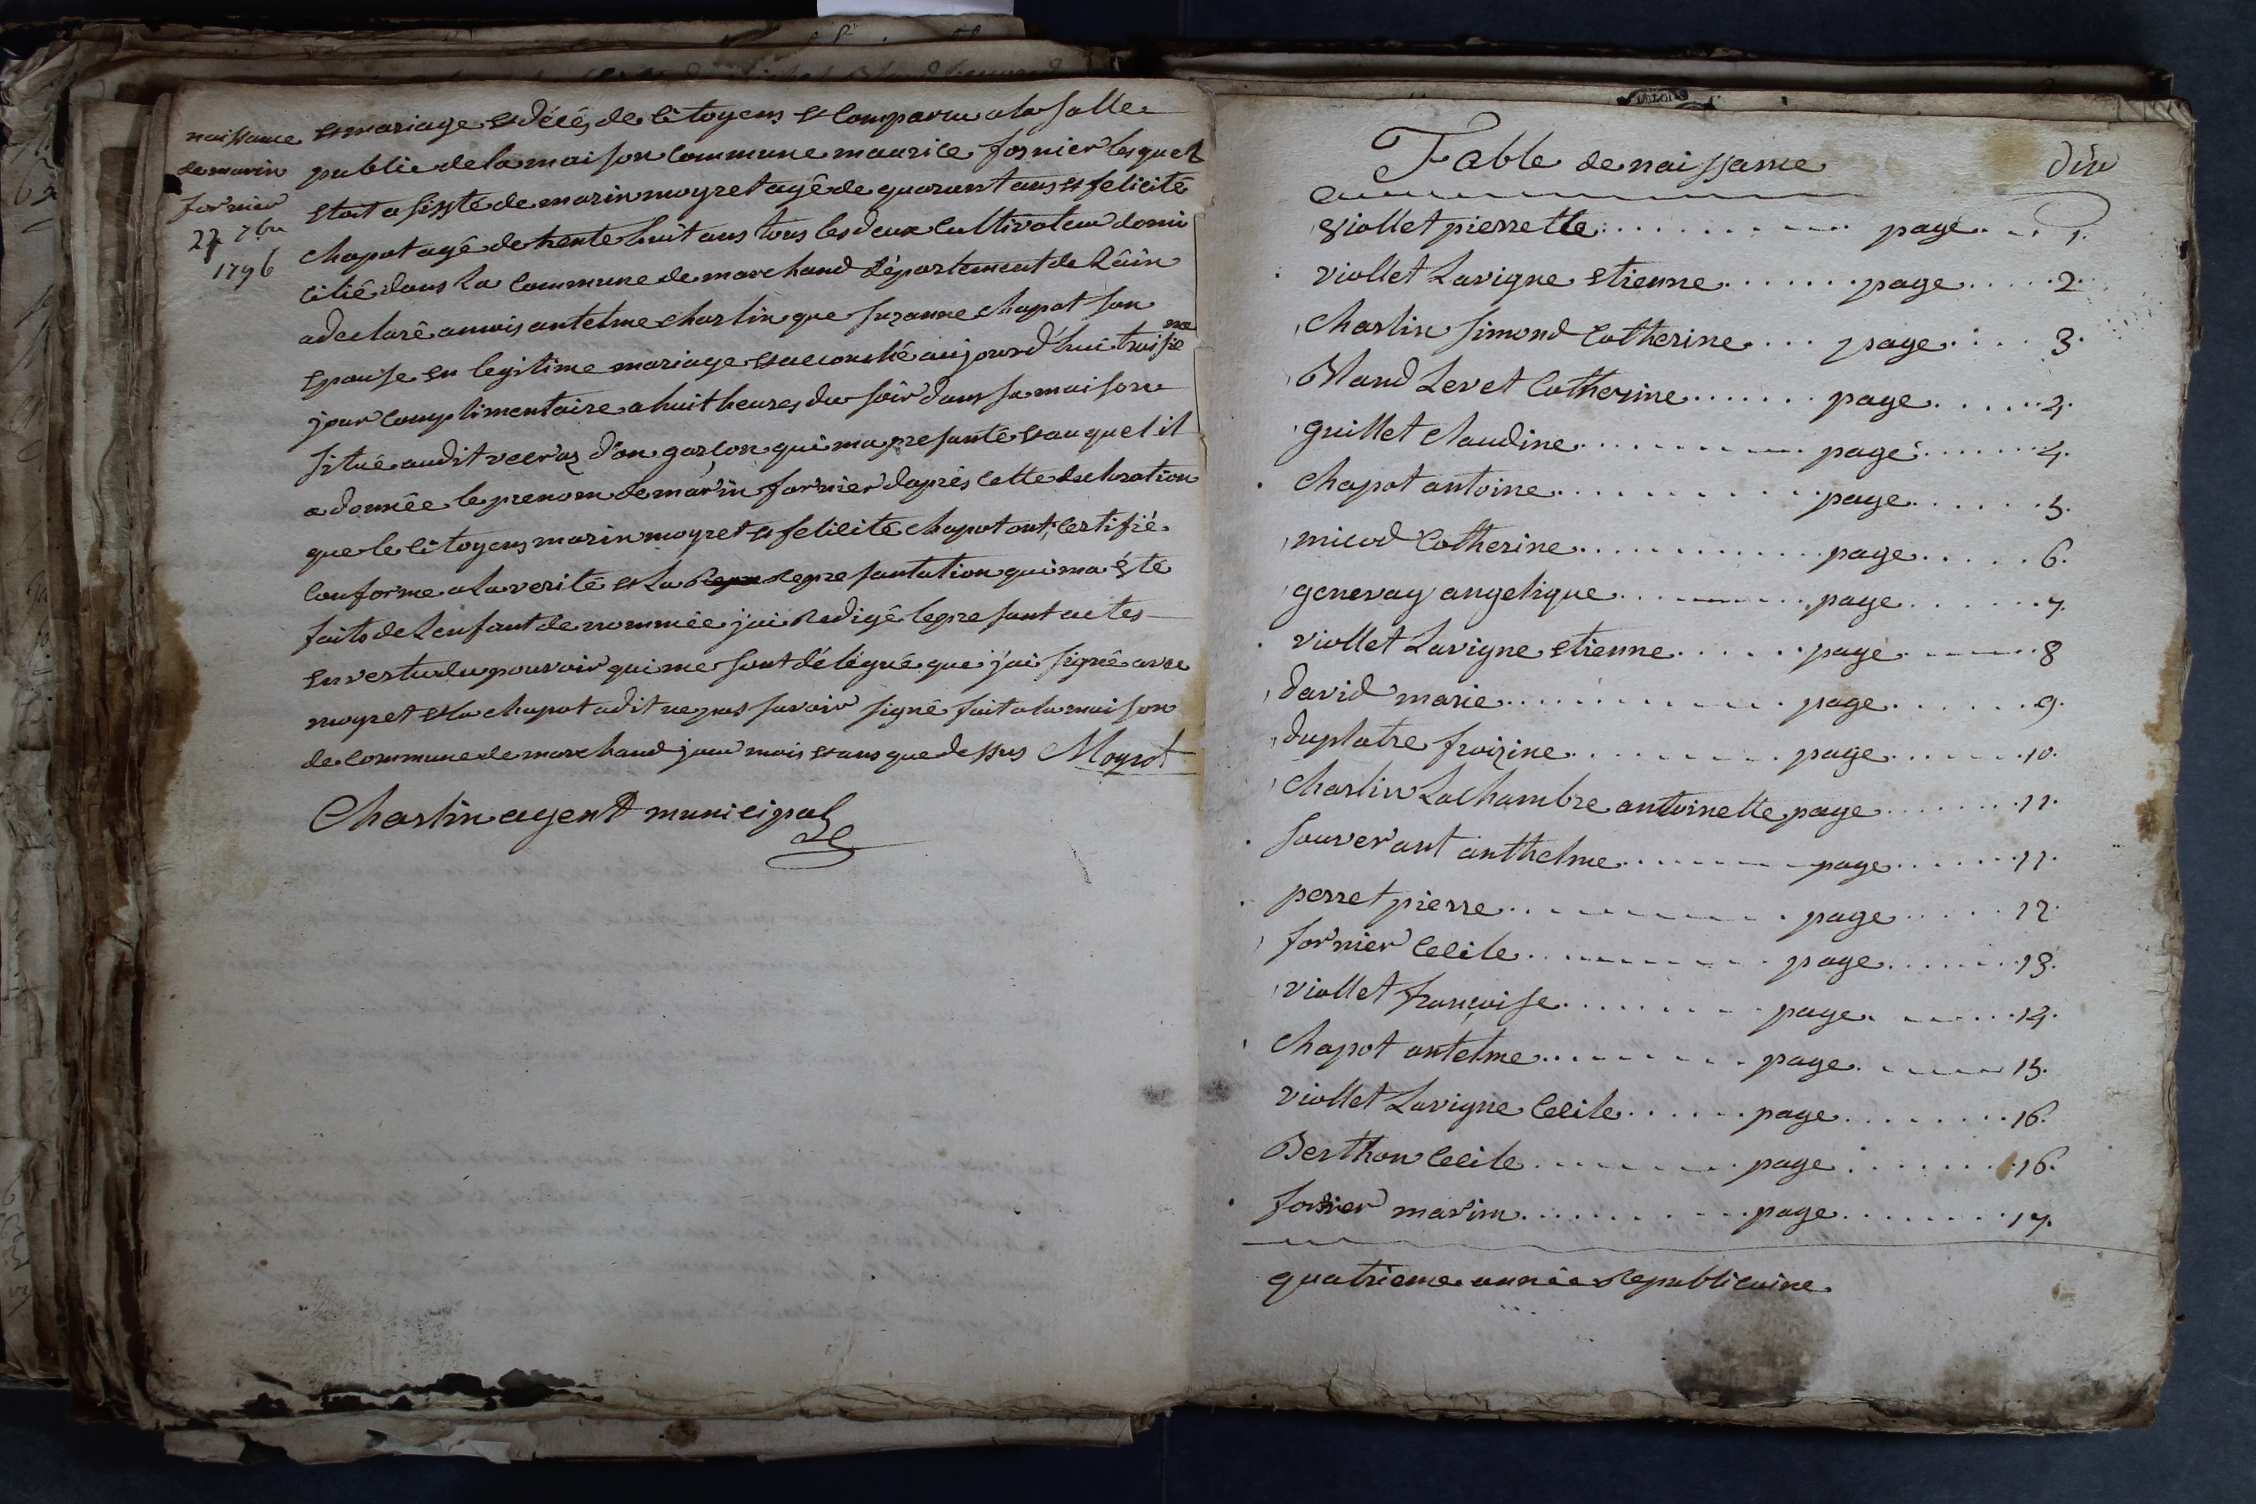 naissance
de marin
fornier
27 7bre
1796
et mariage et décés de citoyens et comparu a la salle
public de la maison commune maurice fornier lesquel
etoit asisté de marin moyret agê de quarant ans et felicité
chapot agê de trente huit ans tous les deux cultivateur domi
cilié dans la commune de marchand département de Lâin
a declarê a mois antelme charlin que suzanne chapot son
epouse en legitime mariage et acouchê aujourd'hui troisie me
jour complimentaire a huit heures du soir dans sa maison
situé audit veeraz d'on garçon qui ma presantê et auquel il
a donnée le prenom de marin fornier daprês cette declaration
que le citoyens marin moyret et felicité chapot ont certifié
conforme a la verité et la represantation qui ma été
faits de l'enfant denommée jai Redigê le presant actes
en vertu du pouvoir qui me sont délégué que j'ai signê avec
moyret et la chapot a dit ne pas savoir signê fait a la maison
de commune de marchand jour mois et ans que dessus Moyret
Charlin agent municipal
Table de naissance div
viollet pierrette page 1.
viollet Lavigne etienne page 2.
charlin simond Catherine page 3.
Bland Levet Catherine page 4.
guillet claudine page 4.
chapot antoine page 5.
micod Catherine page 6.
genevay angelique page 7.
viollet Lavigne etienne page 8
david marie page 9.
duplatre froizine page 10.
charlin Lachambre antoinette page 11.
souverant anthelme page 11.
perret pierre page 12.
fornier Cecile page 13.
viollet françoise page 14.
chapot antelme page 15.
viollet Lavigne Cecile page 16.
Berthon Cecile page 16.
fornier marin page 17.
quatrieme année Republicaine